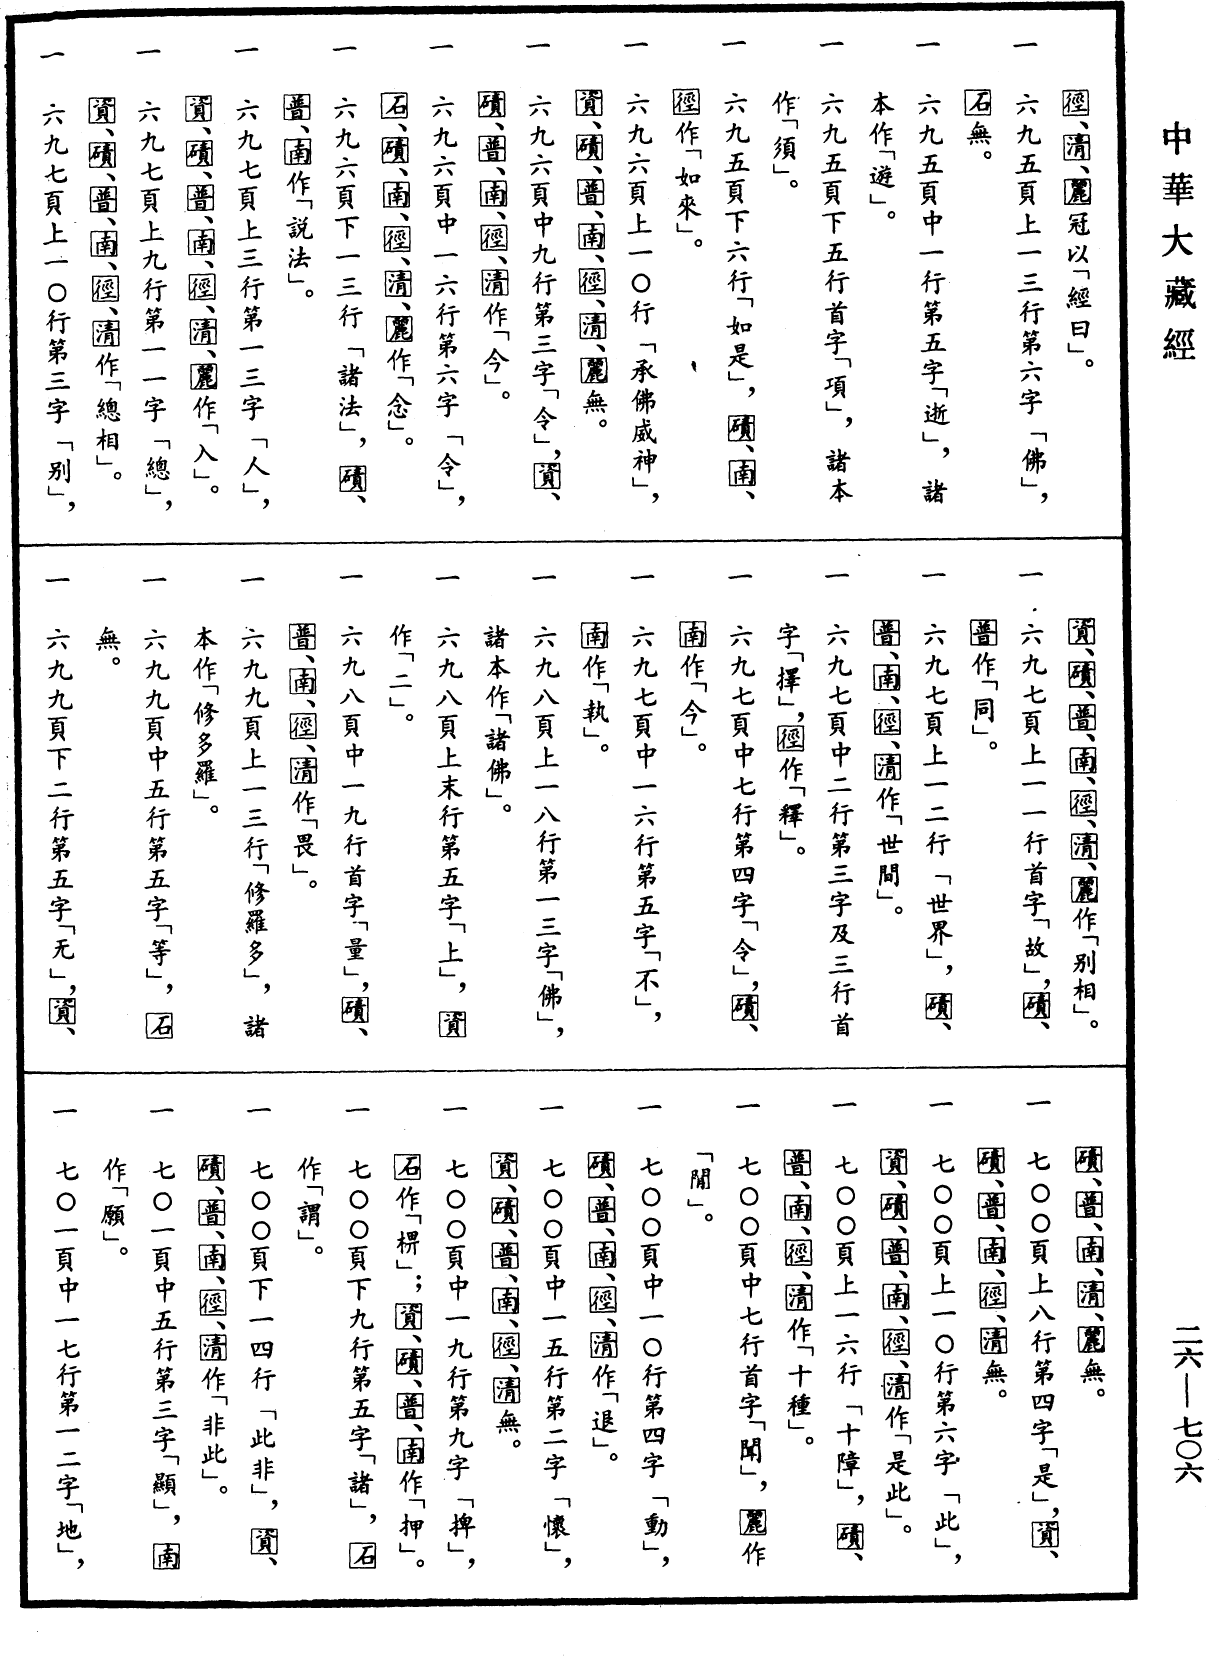 中華大藏經
二六—七〇六
徑、清、麗冠以「經曰」。
一　六九五頁上一三行第六字「佛」，
石無。
一　六九五頁中一行第五字「逝」，諸
本作「遊」。
一　六九五頁下五行首字「項」，諸本
作「須」。
一　六九五頁下六行「如是」，磧、南、
徑作「如來」。
一　六九六頁上一〇行「承佛威神」，
資、磧、普、南、徑、清、麗無。
一　六九六頁中九行第三字「令」，資、
磧、普、南、徑、清作「今」。
一　六九六頁中一六行第六字「令」，
石、磧、南、徑、清、麗作「念」。
一　六九六頁下一三行「諸法」，磧、
普、南作「說法」。
一　六九七頁上三行第一三字「人」，
資、磧、普、南、徑、清、麗作「入」。
一　六九七頁上九行第一一字「總」，
資、磧、普、南、徑、清作「總相」。
一　六九七頁上一〇行第三字「別」，
資、磧、普、南、徑、清、麗作「別相」。
一　六九七頁上一一行首字「故」，磧、
普作「同」。
一　六九七頁上一二行「世界」，磧、
普、南、徑、清作「世間」。
一　六九七頁中二行第三字及三行首
字「擇」，徑作「釋」。
一　六九七頁中七行第四字「令」，磧、
南作「今」。
一　六九七頁中一六行第五字「不」，
南作「執」。
一　六九八頁上一八行第一三字「佛」，
諸本作「諸佛」。
一　六九八頁上末行第五字「上」，資
作「二」。
一　六九八頁中一九行首字「量」，磧、
普、南、徑、清作「畏」。
一　六九九頁上一三行「修羅多」，諸
本作「修多羅」。
一　六九九頁中五行第五字「等」，石
無。
一　六九九頁下二行第五字「无」，資、
磧、普、南、清、麗無。
一　七〇〇頁上八行第四字「是」，資、
磧、普、南、徑、清無。
一　七〇〇頁上一〇行第六字「此」，
資、磧、普、南、徑、清作「是此」。
一　七〇〇頁上一六行「十障」，磧、
普、南、徑、清作「十種」。
一　七〇〇頁中七行首字「聞」，麗作
「閒」。
一　七〇〇頁中一〇行第四字「動」，
磧、普、南、徑、清作「退」。
一　七〇〇頁中一五行第二字「懷」，
資、磧、普、南、徑、清無。
一　七〇〇頁中一九行第九字「捭」，
石作「㮏」；資、磧、普、南作「押」。
一　七〇〇頁下九行第五字「諸」，石
作「謂」。
一　七〇〇頁下一四行「此非」，資、
磧、普、南、徑、清作「非此」。
一　七〇一頁中五行第三字「顯」，南
作「願」。
一　七〇一頁中一七行第一二字「地」，